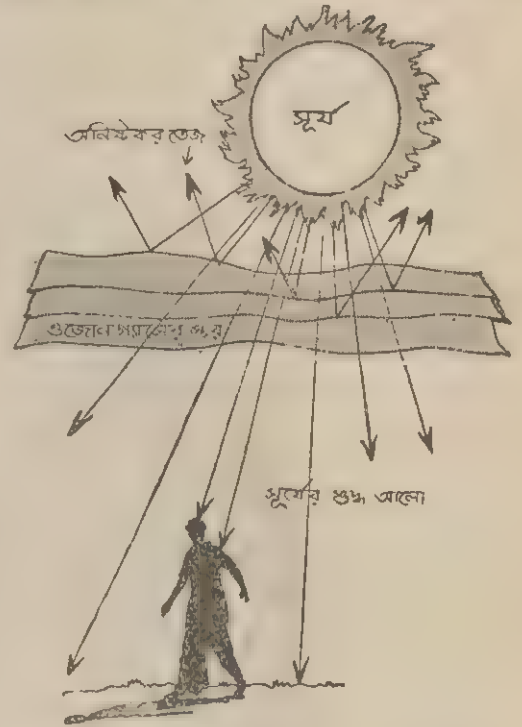 সূর্য
অনিষ্টকর তেজ
ওজোন গ্যাসের স্তর
সূর্যের শুদ্ধ আলো